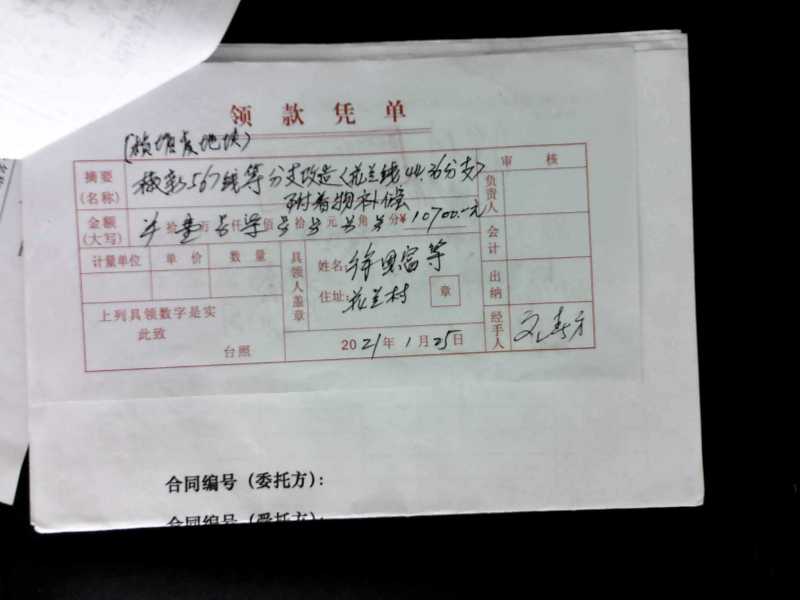 领款凭单
地块)
摘要 567线等分支改造(花兰线44.36分支) 审核
(名称) 附着物补偿 负责人
金额 壹万零仟柒佰零拾零元零角零分¥10700.00元
(大写) 会计
计量单位 单价 数量 具领人盖章 姓名: 等 出纳
住址: 花兰村 章
上列具领数字是实 经手人
此致
台照 2021年1月25日
合同编号(委托方):
合同编号(受托方):